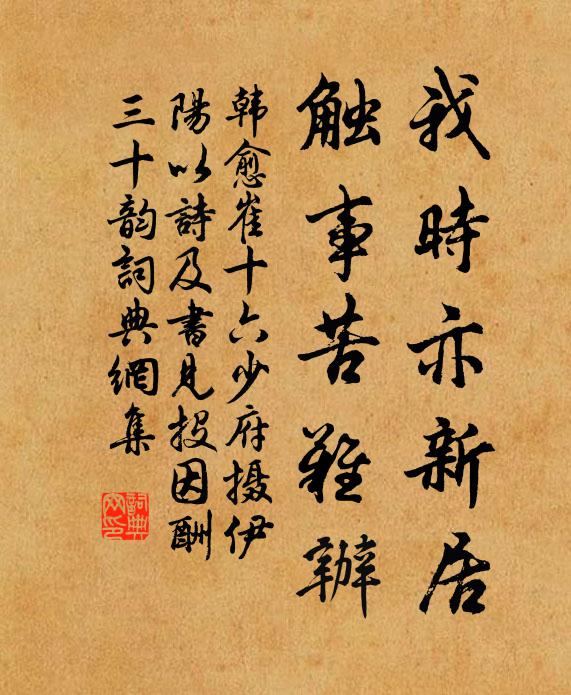 我時亦新居
触事苦難辦
韩愈崔十六少府摄伊
陽以詩及書見投因酬
三十韵詞典網集
詞典
网印